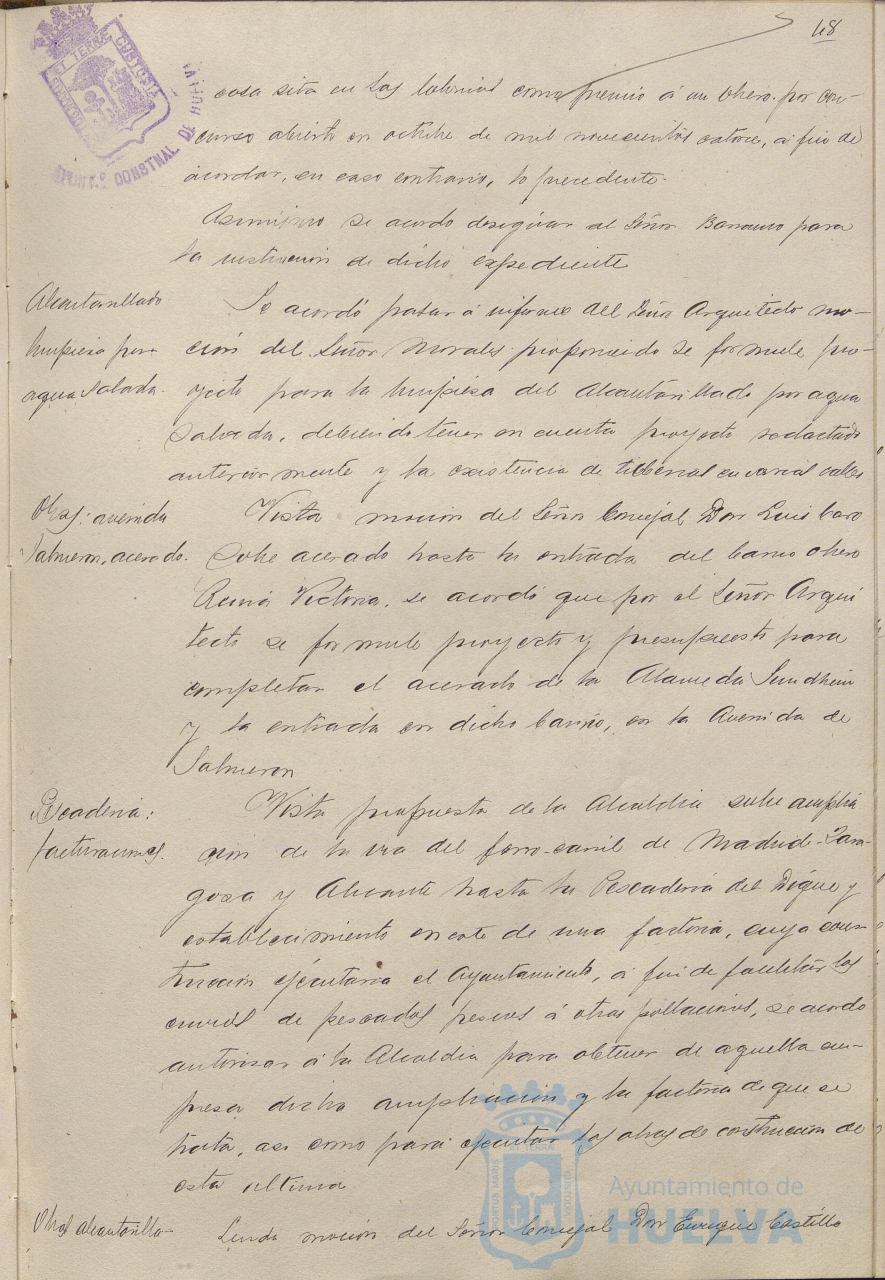 48
casa sita en las Colonias como premio á un obrero por con-
curso abierto en octubre de mil novecientos catorce, á fin de
acordar, en caso contrario, lo procedente.
Asimismo se acordó designar al Señor Barranco para
la instrucción de dicho expediente
Alcantarillado
limpieza por
agua salada.
Se acordó pasar á informe del Señor Arquitecto mo-
ción del Señor Morales proponiendo se formule pro-
yecto para la limpieza del Alcantarillado por agua
salada, debiendo tener en cuenta proyecto redactado
anteriormente y la existencia de tuberias en varias calles
Obras: avenida
Salmeron, acerado.
Vista moción del Señor Concejal Don Luis Caro
sobre acerado hasta la entrada del barrio obrero
Reina Victoria, se acordó que por el Señor Arqui
tecto se formule proyecto y presupuesto para
completar el acerado de la Alameda Sundheim
y la entrada en dicho barrio, en la Avenida de
Salmeron
Pescaderia:
facturaciones.
Vista propuesta de la Alcaldia sobre amplia
ción de la via del ferro-carril de Madrid-Zara-
goza y Alicante hasta la Pescaderia del Dique y
establecimiento en este de una factoria, cuya cons-
trucción ejecutaria el Ayuntamiento, á fin de facilitar los
envios de pescados frescos á otras poblaciones, se acordó
autorizar á la Alcaldia para obtener de aquella em-
presa dicha ampliación y la factoria de que se
trata, asi como para ejecutar las obras de construcción de
esta ultima
Obras alcantarilla
Leida moción del Señor Concejal Don Enrique Castillo
Ayuntamiento de
HUELVA